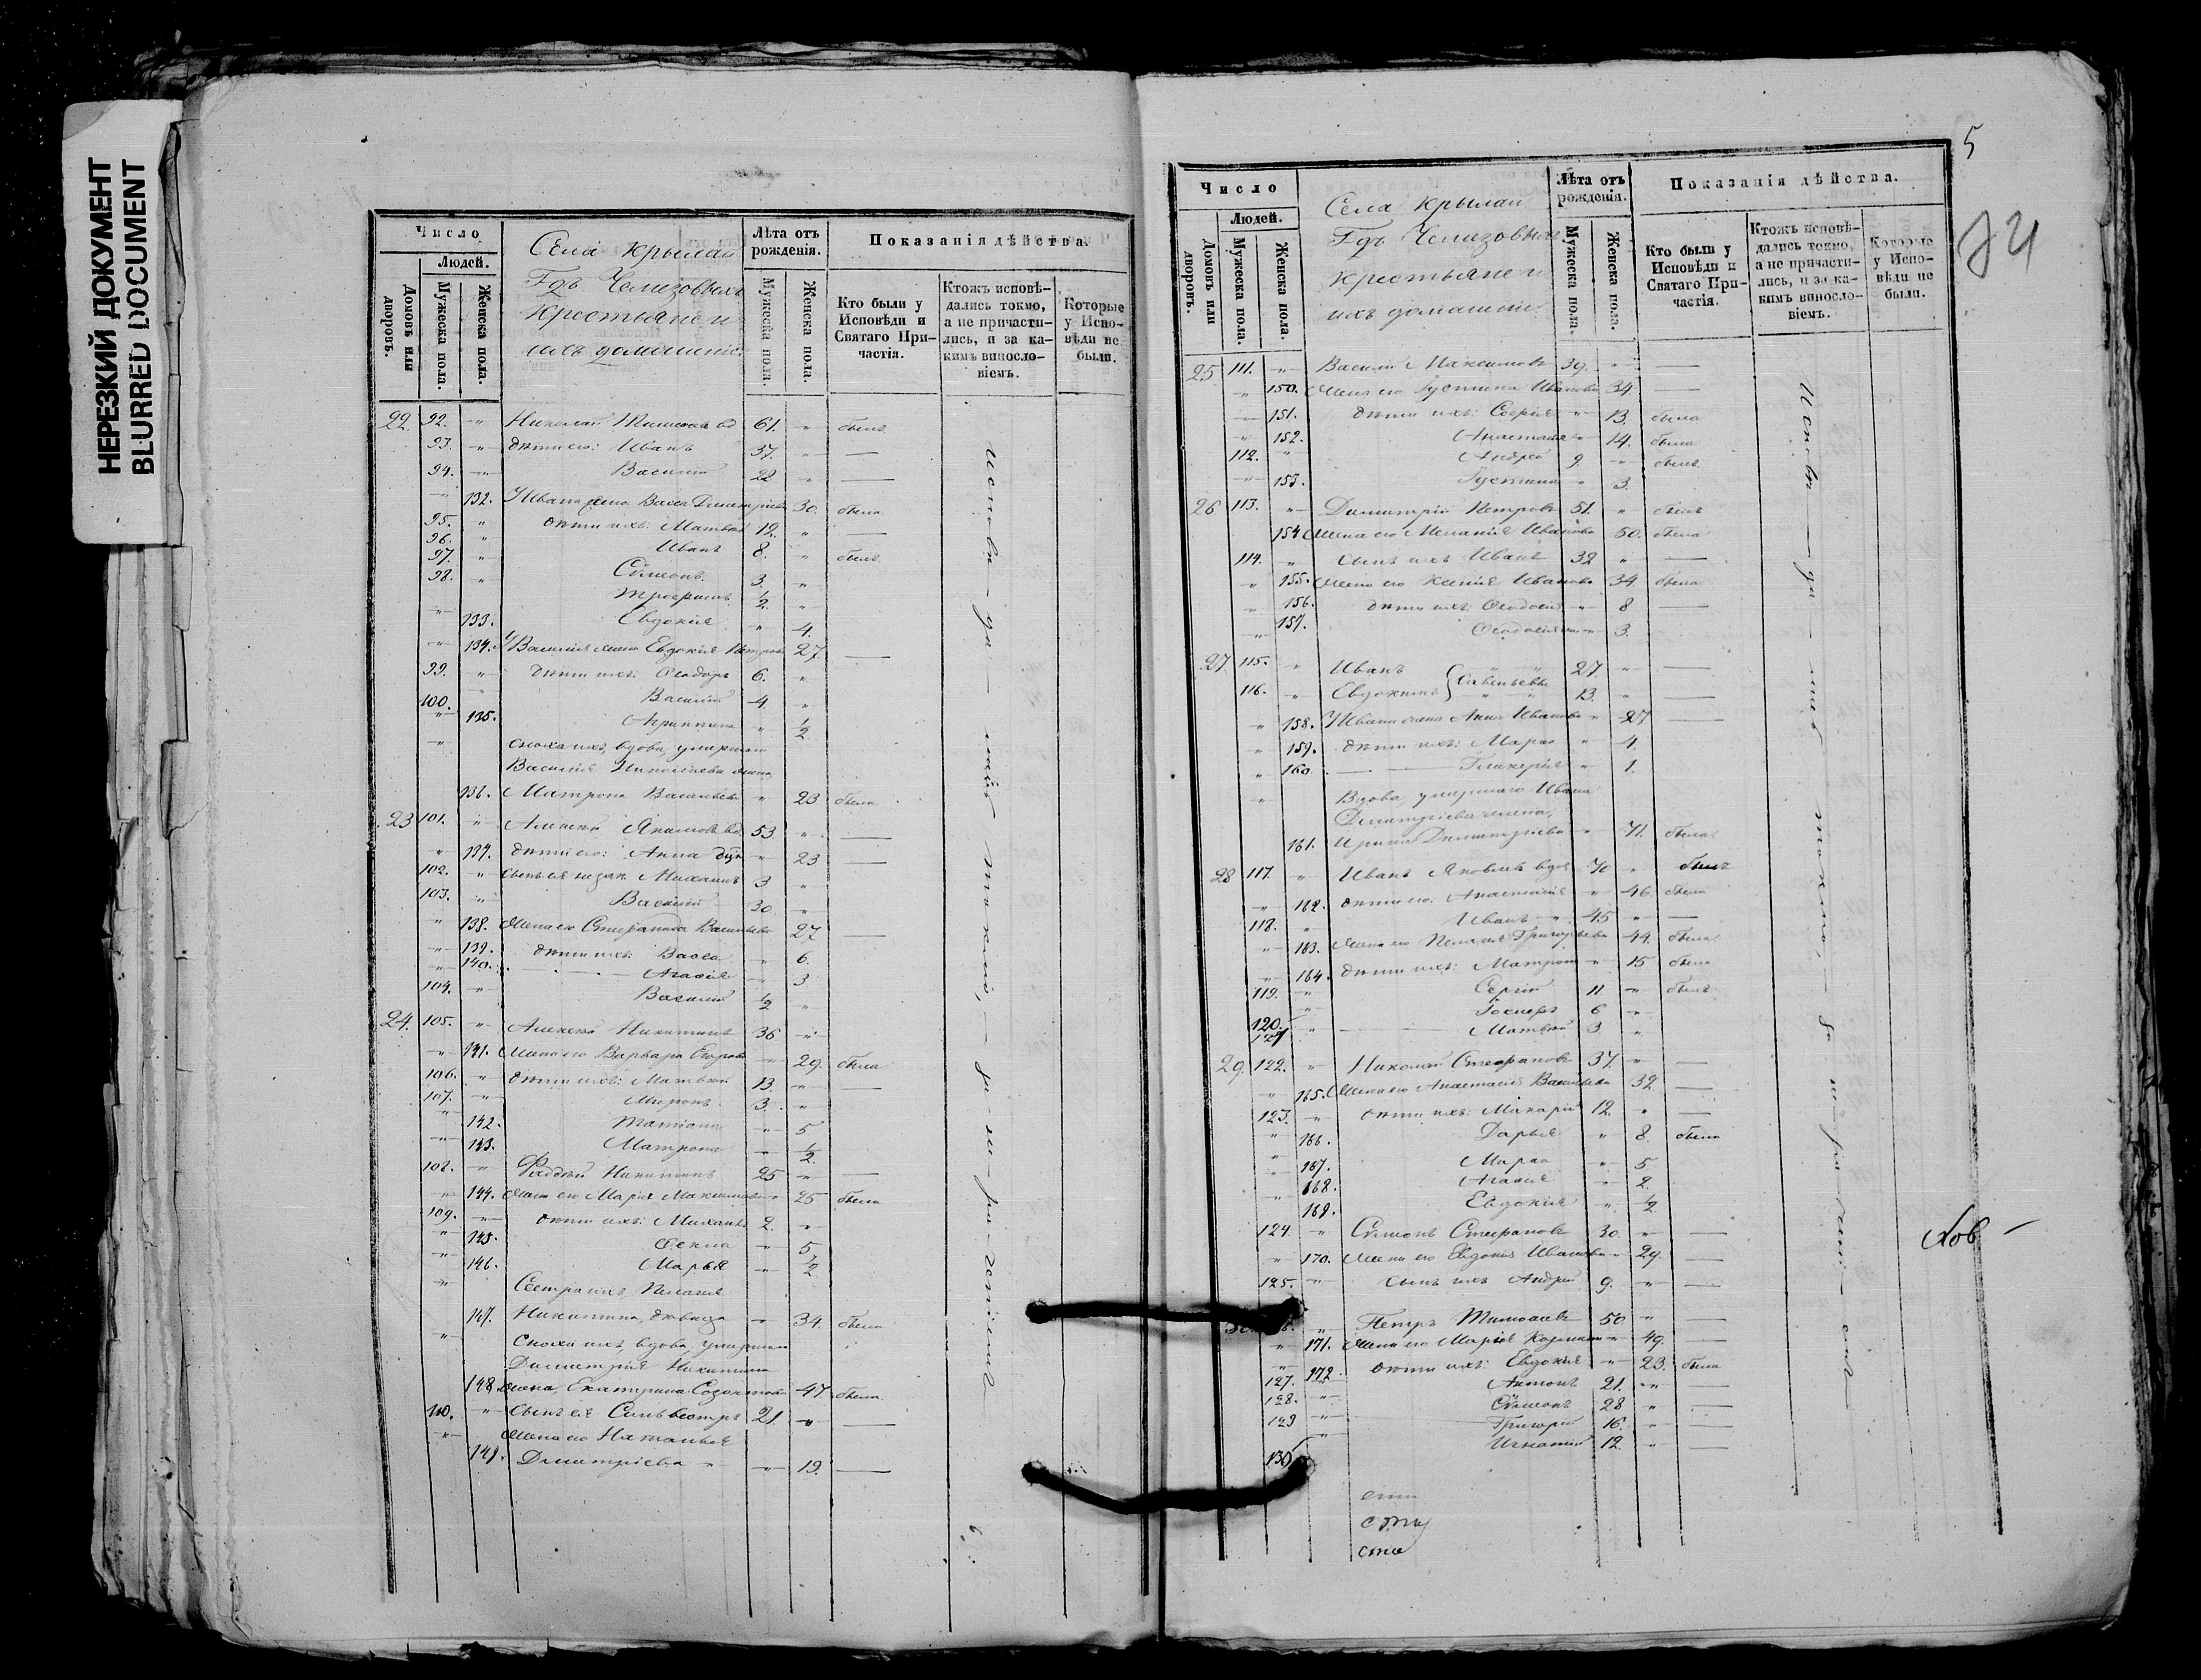 НЕРЕЗКИЙ ДОКУМЕНТ
BLURRED DOCUMENT
Число
Людей.
Домовъ или дворовъ.
Мужеска пола.
Женска пола.
Села Крылай
Гдъ Челизовыхъ
Крестьяне и
ихъ домашніе.
Лѣта отъ рожденія.
Мужеска пола.
Женска пола.
Показанія дѣйства.
Кто были у Исповѣди и Святаго Причастія.
Ктожъ исповѣдались токмо, а не причастились, и за какимъ винословіемъ.
Которые у Исповѣди не были.
22. 92. " Николай вд. 61. " былъ
93. " дѣти его: Иванъ 37. " —
94. " Василій 22 " —
" 132. Ивана жена Васса Димитріева 30. была
95. " дѣти ихъ: Матвѣй 12. " —
96. " Иванъ 8. " былъ
97. " Сѵмеонъ 3. "
98. " Трофимъ ½ "
" 133. Евдокія " 4.
" 134. Василія жена Евдокія Петрова 27. —
99. " дѣти ихъ: Ѳеодоръ 6. "
100. " Василій 4. "
" 135. Агрипина " ½
" сноха ихъ, вдова, умершаго
Василія Николаева жена
136. Матрона Васильева " 23 была
23 101. " Алексѣй Якимовъ вд. 53. " —
" 137. дѣти его: Анна " 23 —
102. " сынъ ея незак. Михаилъ 3 "
103. " Василій 30 "
" 138. Жена его Стефанида Васильева 27 —
" 139. дѣти ихъ: Васса " 6.
" 140. Агафія " 3
104. " Василій ½ "
24. 105. " Алексѣй Никитинъ 36 "
" 141. Жена его Варвара Егорова " 29. была
106. " дѣти ихъ: Матвѣй 13. " —
107. " Миронъ 3. "
" 142. Татіана " 5
" 143. Матрона " ½
108. " Фаддей Никитинъ 25 " —
" 144. Жена его Марія Максимова " 25 была
109. " дѣти ихъ: Михаилъ 2. "
" 145. Ѳекла " 5
" 146. Марья " ½
" Сестра ихъ, Пелагія
147. Никитина, дѣвица " 34. была
" Сноха ихъ, вдова, умершаго
Димитрія Никитина
148 жена, Екатерина Созонтова 47. была
110. " Сынъ ея Сильвестръ 21. " —
" Жена его Наталья
149. Димитріева " " 19. —
5
74
Число
Людей.
Домовъ или дворовъ.
Мужеска пола.
Женска пола.
Села Крылай
Гдъ Челизовыхъ
крестьяне и
ихъ домашніе.
Лѣта отъ рожденія.
Мужеска пола.
Женска пола.
Показанія дѣйства.
Кто были у Исповѣди и Святаго Причастія.
Ктожъ исповѣдались токмо, а не причастились, и за какимъ винословіемъ.
Которые у Исповѣди не были.
25 111. " Василій Максимовъ 39. " —
" 150. Жена его Іустина Иванова 34. —
" 151. дѣти ихъ: Софія " 13. была
" 152. Анастасія " 14. была
112. " Андрей 9. " былъ
" 153. Іустина " 3.
26 113. " Димитрій Петровъ 51. " былъ
154 Жена его Меланія Иванова 50. была
114. " сынъ ихъ Иванъ 32 " —
" 155. Жена его Ксенія Иванова 34. была
" 156. дѣти ихъ: Ѳеодосія " 8 —
" 157. " 3.
27 115. " Иванъ 27. " —
116. " Евдокимъ Савельевы 13. " —
" 158. Ивана жена Анна Иванова " 27 —
" 159. дѣти ихъ: Марѳа " 4.
" 160. Гликерія " 1.
" Вдова, умершаго Ивана
Димитріева жена,
161. Ирина Димитріева " 71. была
28 117. " Иванъ Яковлевъ вдов 70 " былъ
" 162. дѣти его: Анастасія " 46. была
118. " Иванъ " 45 " —
" 163. Жена его Пелагія Григорьева 44. была
" 164. дѣти ихъ: Матрона " 15 была
119. " Сергій 11 " былъ
120. " Іосифъ 6 "
121 " Матвѣй 3 "
29. 122. " Николай Стефановъ 37. " —
" 165. Жена его Анастасія Васильева 32. —
123. " дѣти ихъ: Макарій 12. " —
" 166. Дарья " 8. была
" 167. Марѳа " 5
" 168. Агафія " 2.
" 169. Евдокія " ½
124. " Сѵмеонъ Стефановъ 30. " —
" 170. Жена его Евдокія Иванова " 29. —
125. " сынъ ихъ Андрей 9. " —
" Петръ 50 " —
" 171. Жена его Марія " 49. —
" 172. дѣти ихъ: Евдокія " 23. была
127. " Антонъ 21. " —
128. " Сѵмеонъ 28 " —
129 " Григорій 16. " —
130 " Игнатій 12. " —